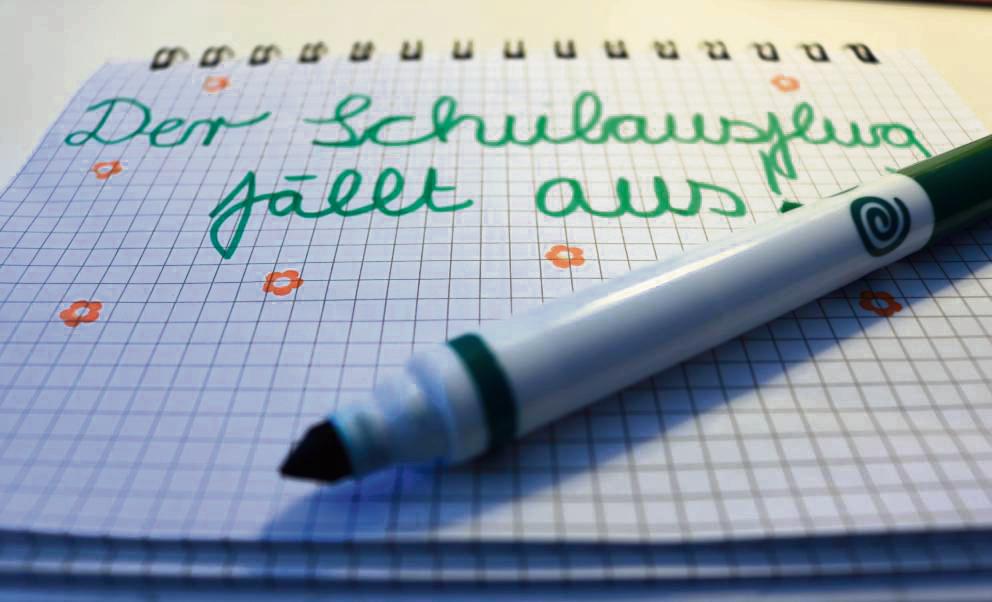 Der Schulausflug
fällt aus.